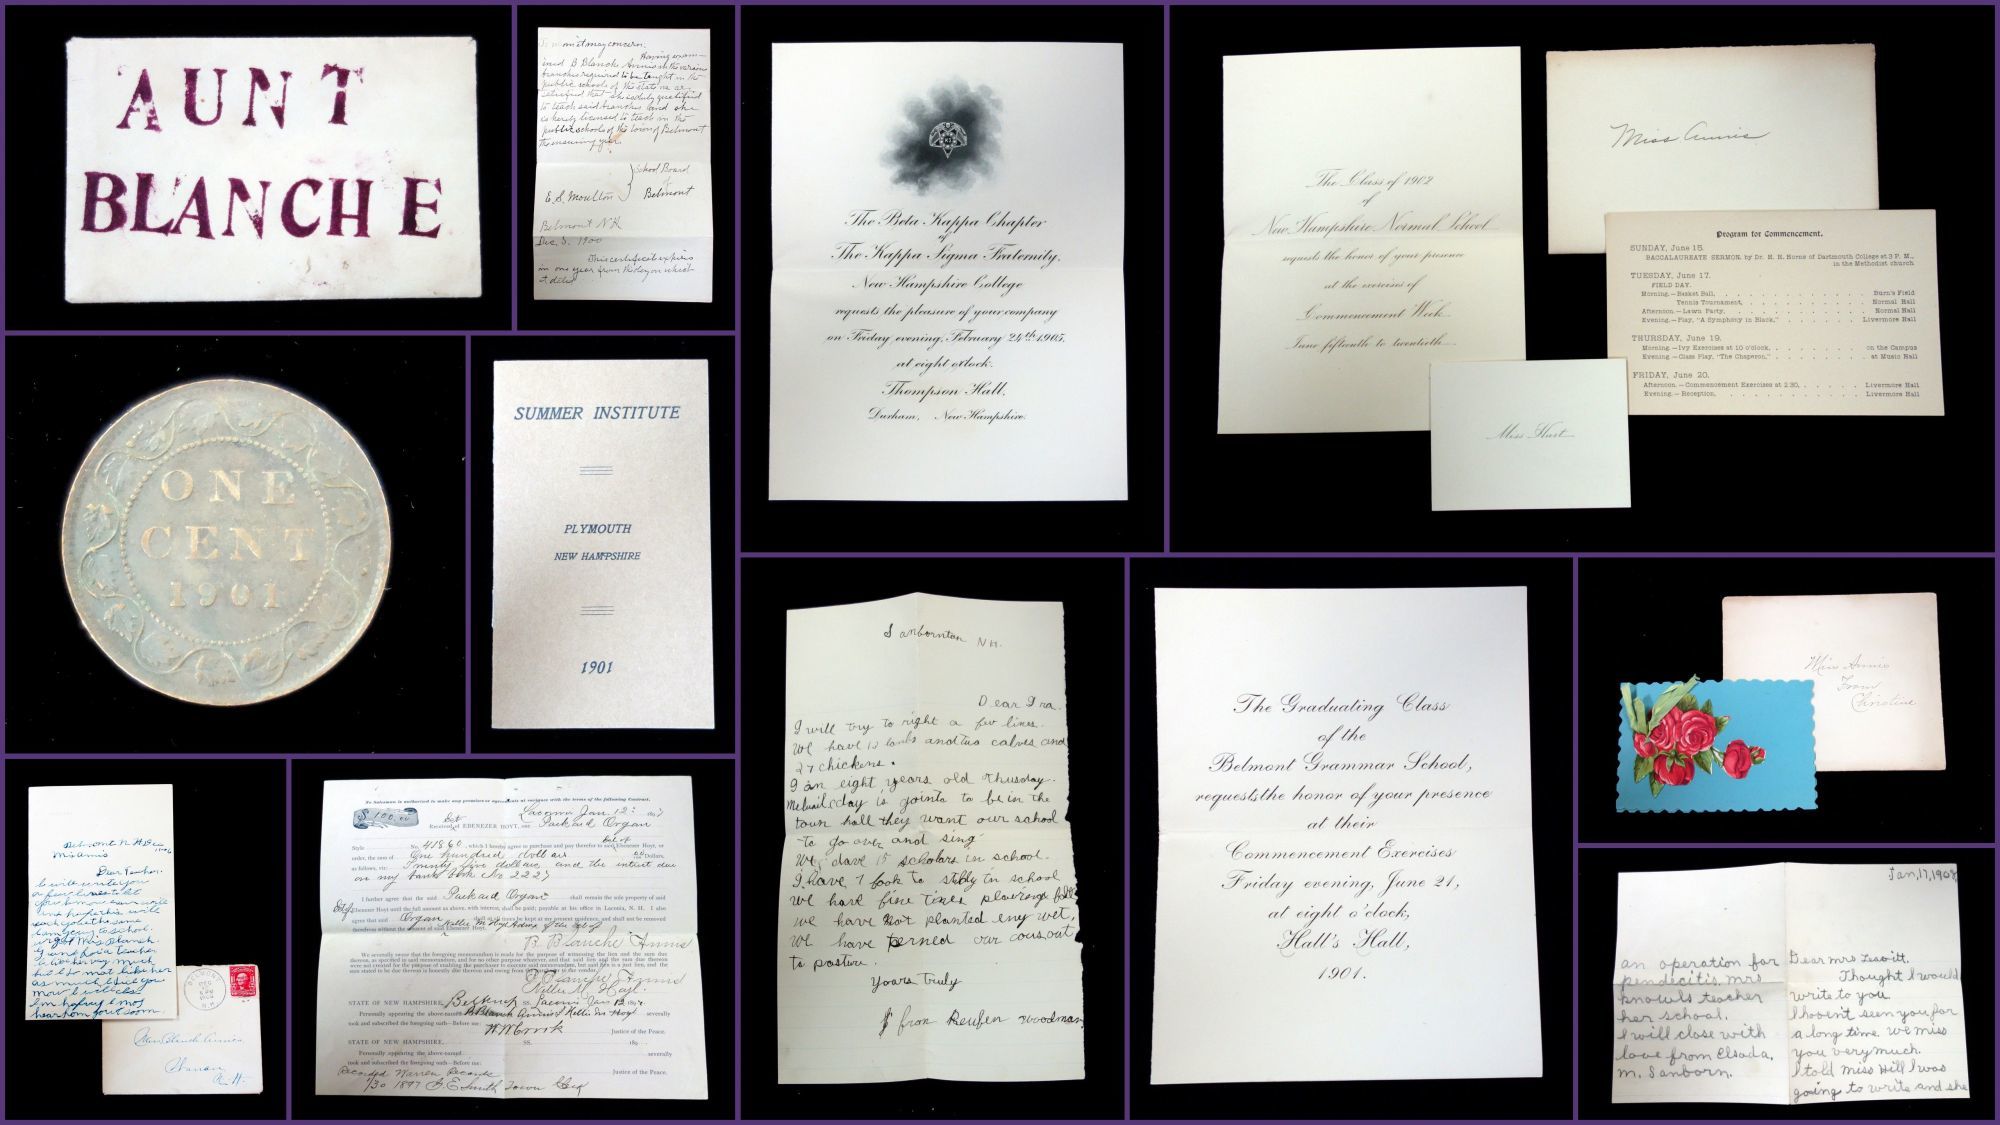 AUNT
BLANCHE
may concern.
Having exam-
ined B Blanche Annis in the various
branches required to be taught in the
public schools of the state we are
satisfied that she is duly qualified
to teach said branches and she
is hereby licensed to teach in the
public schools of the town of Belmont
the ensuing year.
School Board
of
E. S. Moulton } Belmont
Belmont N.H.
Dec. 3. 1900
This certificate expires
in one year from the day on which
it dated
The Beta Kappa Chapter
of
The Kappa Sigma Fraternity.
New Hampshire College
requests the pleasure of your company
on Friday evening, February 24th 1905.
at eight o'clock.
Thompson Hall.
Durham, New Hampshire.
The Class of 1902
of
New Hampshire Normal School
requests the honor of your presence
at the exercises of
Commencement Week
June fifteenth to twentieth
Miss Annis
Program for Commencement.
SUNDAY, June 15.
BACCALAUREATE SERMON, by Dr. H. H. Horne of Dartmouth College at 3 P. M.,
in the Methodist church
TUESDAY, June 17.
FIELD DAY.
Morning.—Basket Ball, Burn's Field
Tennis Tournament, Normal Hall
Afternoon.—Lawn Party, Normal Hall
Evening.—Play, "A Symphony in Black," Livermore Hall
THURSDAY, June 19.
Morning.—Ivy Exercises at 10 o'clock, on the Campus
Evening.—Class Play, "The Chaperon," at Music Hall
FRIDAY, June 20.
Afternoon.—Commencement Exercises at 2:30, Livermore Hall
Evening.—Reception, Livermore Hall
Miss Hart
ONE
CENT
1901
SUMMER INSTITUTE
PLYMOUTH
NEW HAMPSHIRE
1901
Sanbornton N.H.
Dear Ira.
I will try to right a few lines.
We have 12 lambs and two calves and
27 chickens.
I am eight years old Thusday.
day is goinz to be in the
town hall they want our school
to go over and sing
We have 15 scholars in school.
I have 7 book to study in school
we have fine times playing
we have not planted eny wet,
We have terned our cous out
to pasture.
Yours truly
from Reuben Woodman
The Graduating Class
of the
Belmont Grammar School,
requests the honor of your presence
at their
Commencement Exercises
Friday evening, June 21,
at eight o'clock,
Hall's Hall,
1901.
Miss Annis
From
Christine
Belmont N H Dec
Miss Annis
Dear Teacher.
I will write you
BELMONT
DEC
N.H.
Miss Blanch Annis
Warner
N.H.
No Salesman is authorized to make any promises or agreements at variance with the terms of the following Contract.
$100.00
Laconia Jan 12 1897
Received of EBENEZER HOYT, one Packard Organ
Style No. 41860, which I hereby agree to purchase and pay therefor to said Ebenezer Hoyt, or
order, the sum of One hundred dollars Dollars,
as follows, viz: Twenty five dollars and the interest due
on my bank book No 2227
I further agree that the said Packard Organ shall remain the sole property of said
Ebenezer Hoyt until the full amount as above, with interest, shall be paid; payable at his office in Laconia, N. H. I also
agree that said Organ shall be kept at my present residence, and shall not be removed
B. Blanche Annis
B. Blanche Annis
Nellie M. Hoyt.
STATE OF NEW HAMPSHIRE, Belknap SS. Laconia Jan 12 189
Personally appearing the above-named B Blanch Annis & Nellie M Hoyt severally
took and subscribed the foregoing oath—Before me:
Justice of the Peace.
STATE OF NEW HAMPSHIRE, SS. 189
Personally appearing the above-named severally
took and subscribed the foregoing oath—Before me: Justice of the Peace.
Recorded Warren Records
1/30 1897 G. E. Smith Town Clerk
Jan, 17, 1908
Dear Mrs Leavitt.
Thought I would
write to you.
I havent seen you for
a long time. We miss
you very much.
I told Miss Hill I was
going to write and she
an operation for
pendecitis. mrs
knowls teacher
her school.
I will close with
love from Elsada.
M. Sanborn.